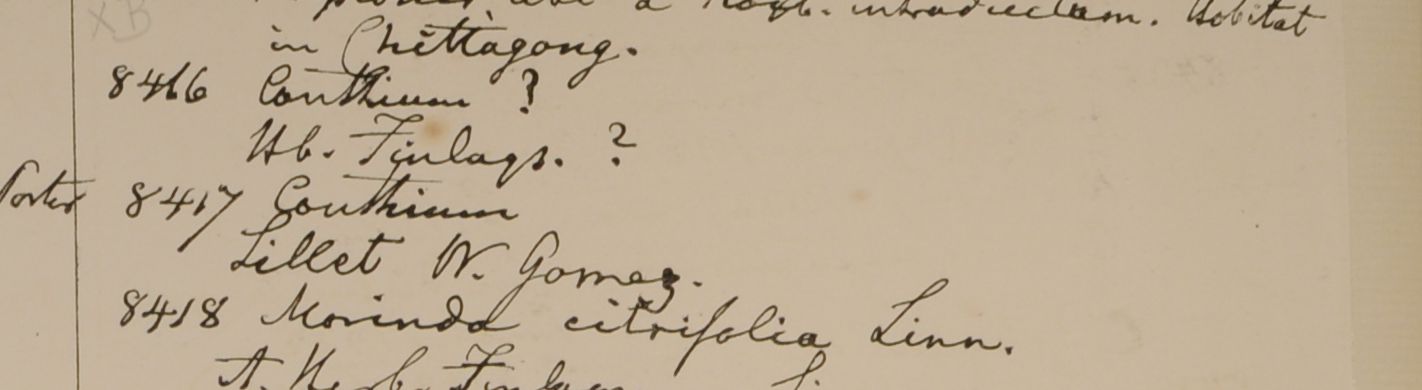 XB
a Roxb. introductam. Habitat
in Chittagong.
8416 Canthium ?
Hb. Finlays. ?
Porter 8417 Canthium
Sillet W. Gomez.
8418 Morinda citrifolia Linn.
A. Herb. Finlays